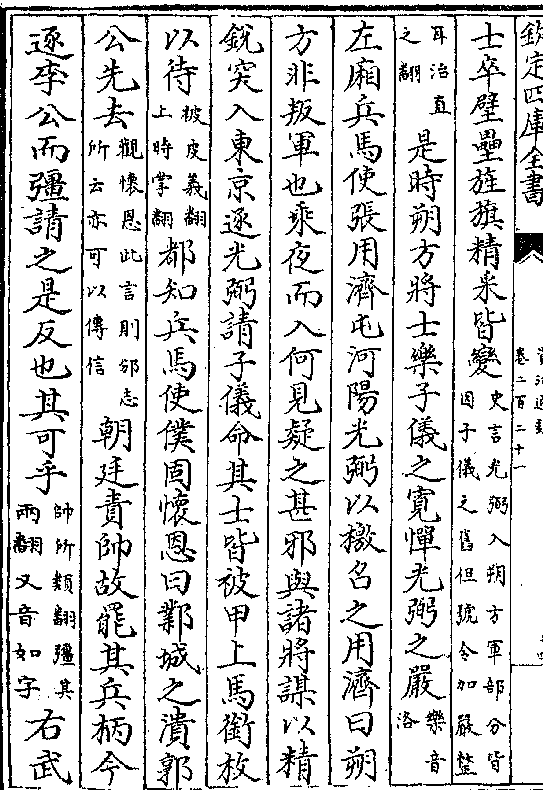 欽定四庫全書
資治通鑑
卷二百二十一
士卒壁壘旌旗精采皆變史言光弼入朔方軍部分皆
因子儀之舊但號令加嚴整
耳治直
之翻是時朔方將士樂子儀之寬憚光弼之嚴樂音
洛
左廂兵馬使張用濟屯河陽光弼以檄召之用濟曰朔
方非叛軍也乘夜而入何見疑之甚邪與諸將謀以精
銳突入東京逐光弼請子儀命其士皆被甲上馬銜枚
以待被皮義翻
上時掌翻都知兵馬使僕固懷恩曰鄴城之潰郭
公先去觀懷恩此言則邠志
所云亦可以傳信朝廷責帥故罷其兵柄今
逐李公而彊請之是反也其可乎帥所類翻彊其
兩翻又音如字右武